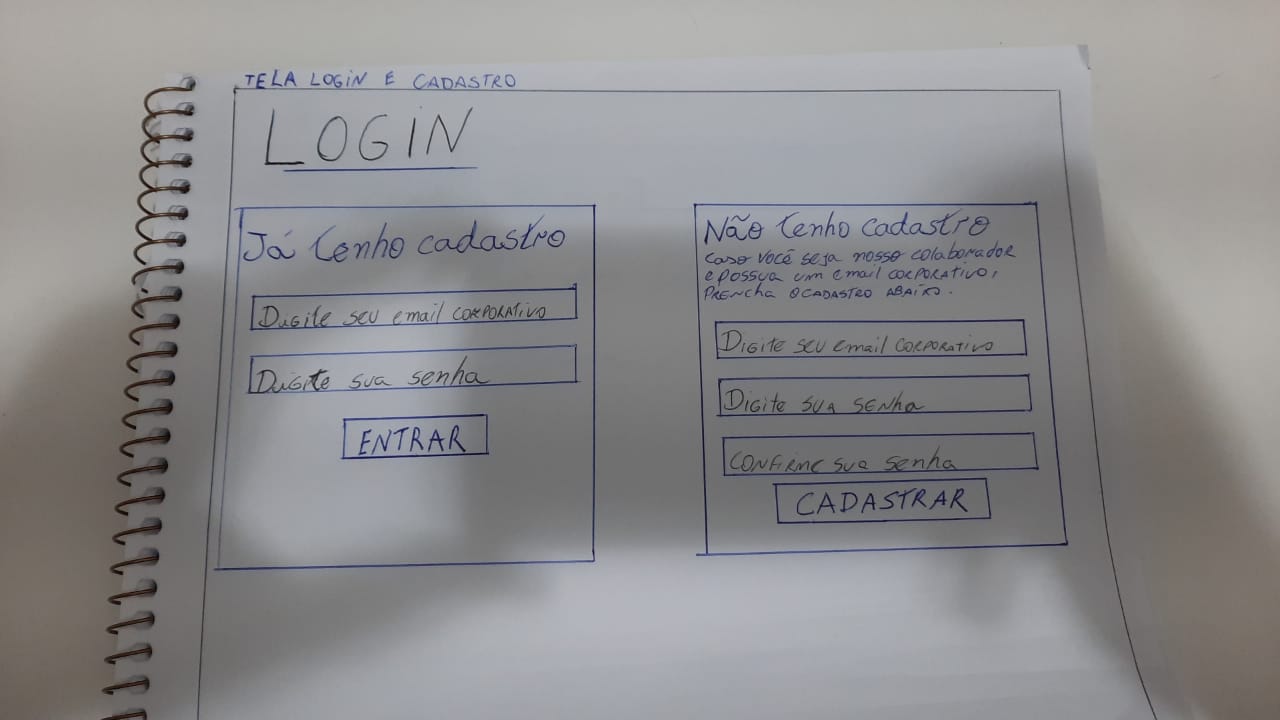 TELA LOGIN E CADASTRO
LOGIN
Já tenho cadastro
Digite seu email CORPORATIVO
Digite sua senha
ENTRAR
Não tenho cadastro
Caso você seja nosso colaborador
e possua um email CORPORATIVO,
PRENCHA O CADASTRO ABAIXO.
Digite seu email CORPORATIVO
Digite sua senha
CONFIRME sua senha
CADASTRAR